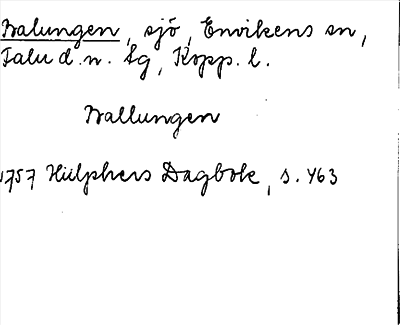 Balungen, sjö, Envikens sn,
Falu d.n. Lg, Kopp. l.
Ballungen
1757 Hülphers Dagbok, s. 463